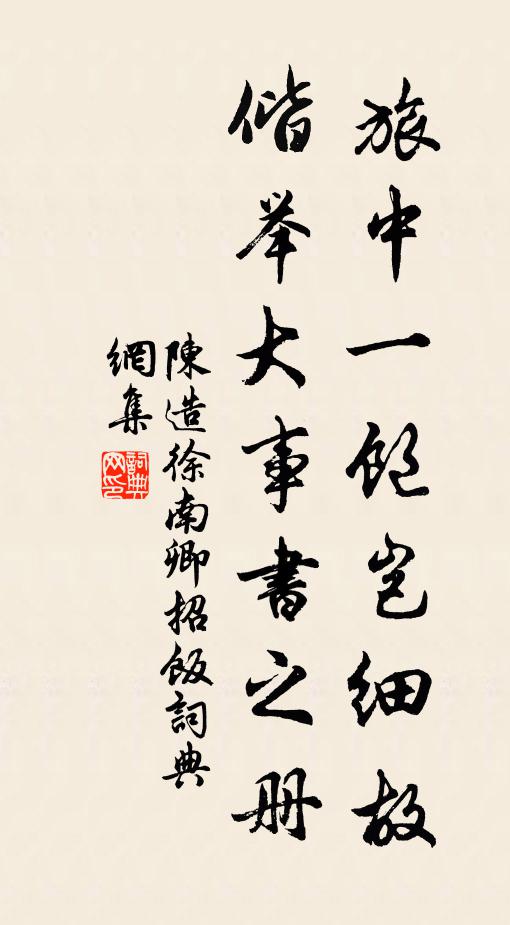 旅中一飽豈細故
偕举大事書之册
陳造徐南卿招飯詞典
網集
詞典網印